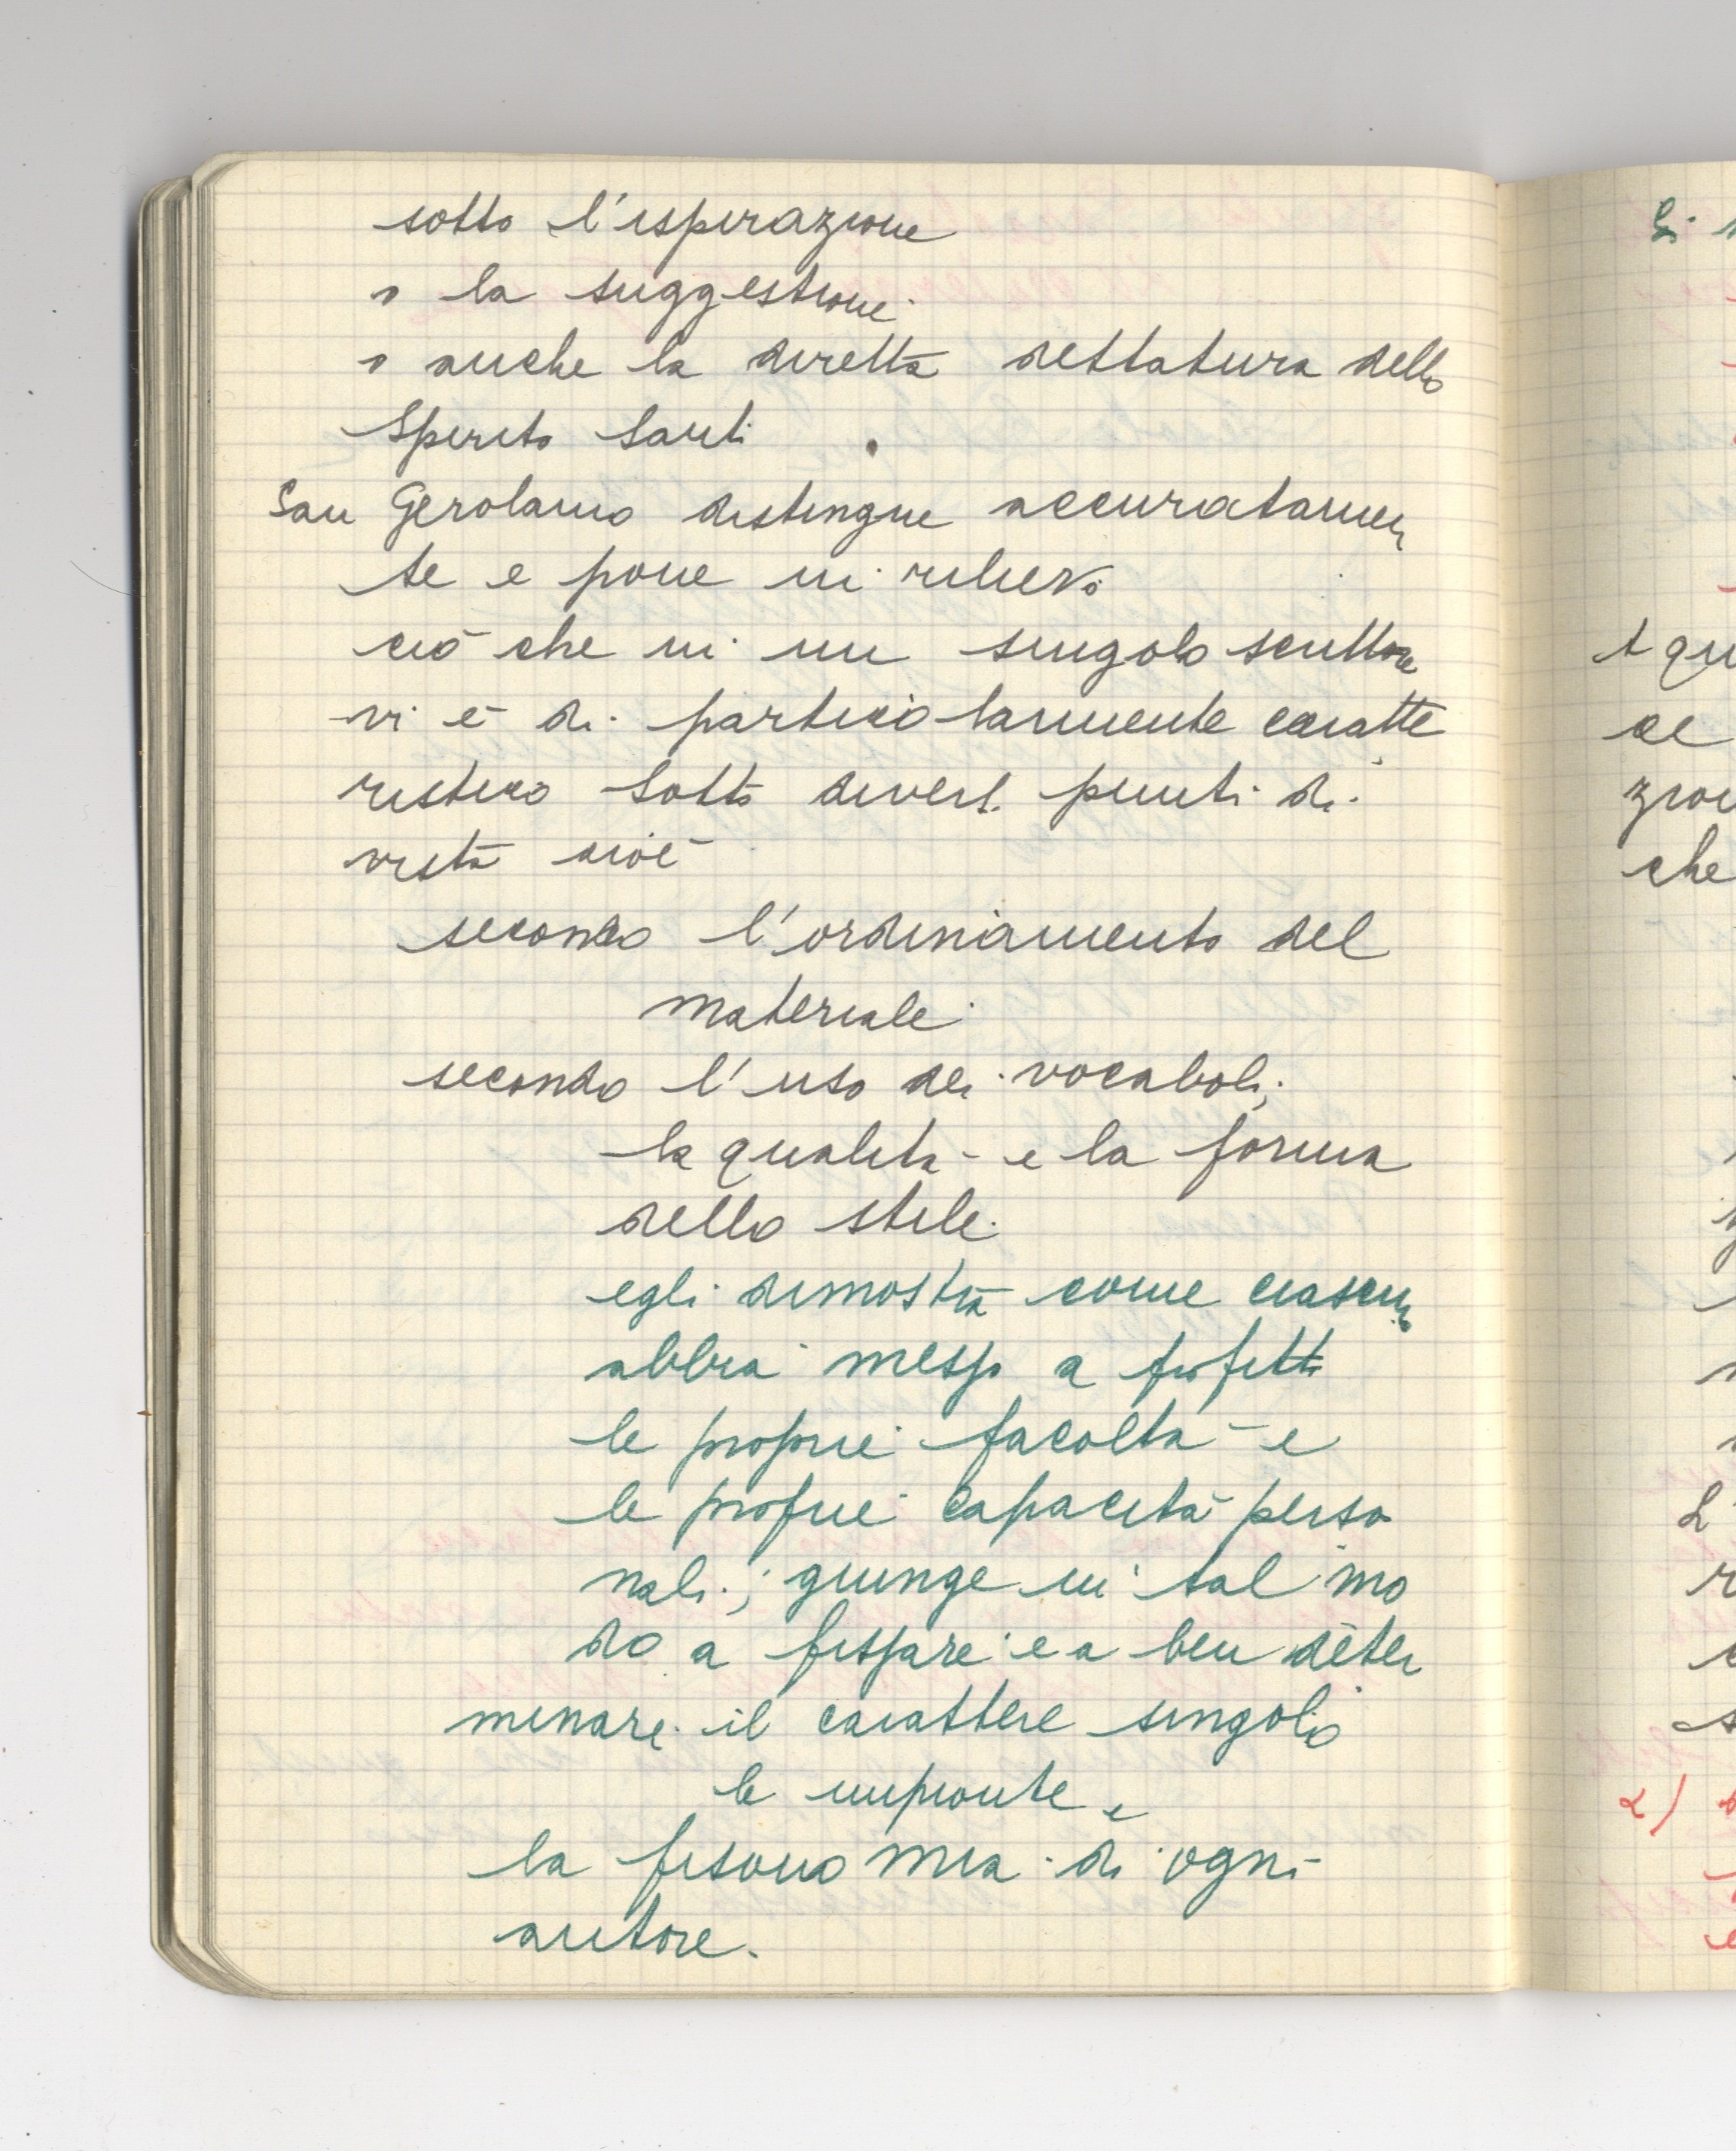 sotto l'ispirazione
o la suggestione
o anche la diretta dettatura dello
Spirito Santi
San Gerolamo distingue accuratamen
te e pone in rilievo
ciò che in un singolo scrittore
vi è di particolarmente caratte
ristico sotto diversi punti di
vista cioè
secondo l'ordinamento del
materiale
secondo l'uso dei vocaboli;
la qualità e la forma
dello stile.
egli dimostra come ciascuno
abbia messo a profitto
le proprie facoltà e
le proprie capacità perso
nali; giunge in tal mo
do a fissare e a ben deter
minare il carattere singolo
le impronte e
la fisonomia di ogni
autore.
che
2)